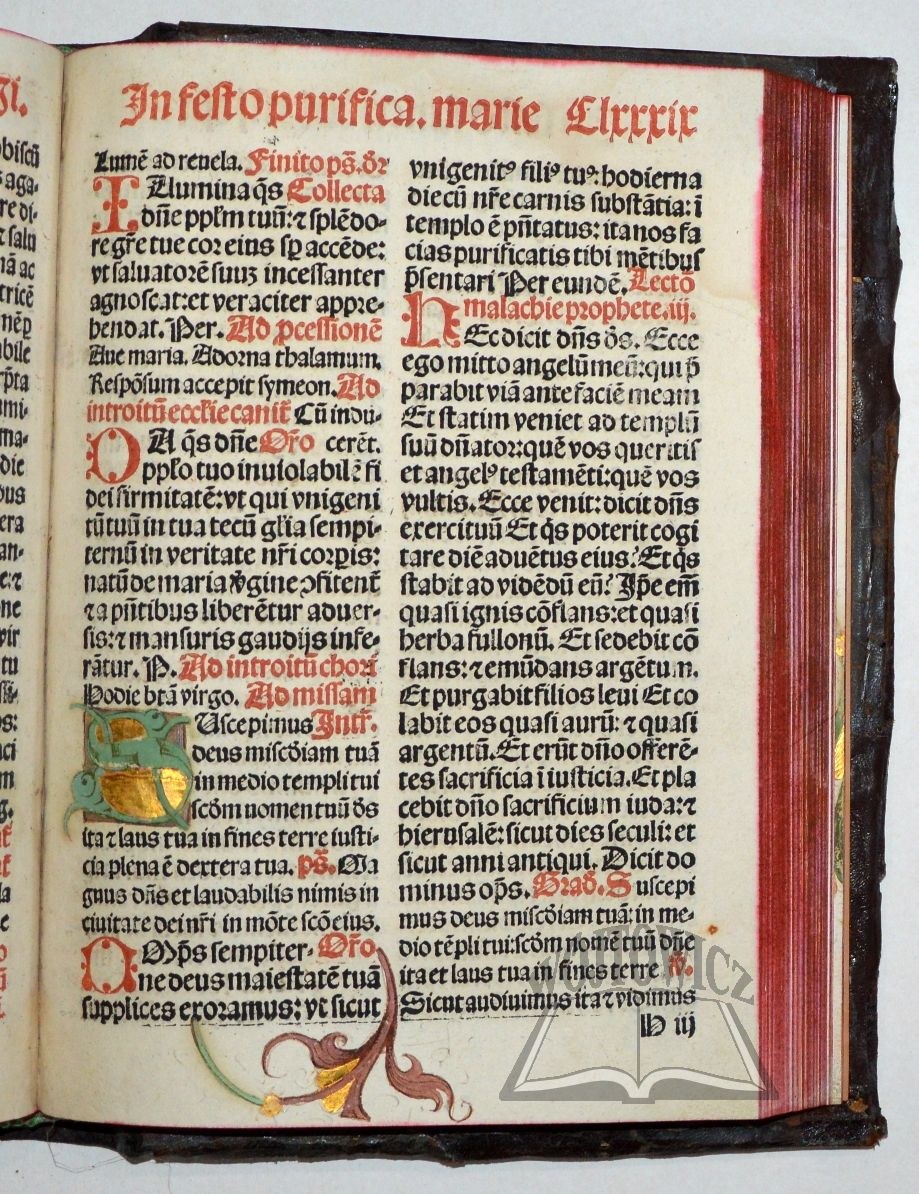 In festo purifica. marie Clxxxix
Lumē ad reuela. Finito ps̄. dr̄
ILlumina q̄s Collecta
dn̄e ppl̄m tuū: ⁊ splēdo-
re gr̄e tue cor eius sp̱ accēde:
vt saluatorē suuꝫ incessanter
agnoscat: et veraciter appre-
hendat. Per. Ad ꝓcessionē
Aue maria. Adorna thalamum.
Respōsum accepit symeon. Ad
introitū eccl̄ie canit̄ Cū indu-
DA q̄s dn̄e Or̄o cerēt.
ppl̄o tuo inuiolabilē fi
dei firmitatē: vt qui vnigeni
tū tuū in tua tecū gl̄ia sempi-
ternū in veritate nr̄i corꝑis:
natū de maria v̓gine ꝯfitent̄
⁊ a pn̄tibus liberētur aduer-
sis: ⁊ mansuris gaudijs inse-
rātur. P. Ad introitū chori
Hodie btā virgo. Ad missam
SUscepimus Intr̄.
deus misc̄diam tuā
in medio templi tui
scd̄m nomen tuū ds̄
ita ⁊ laus tua in fines terre iusti-
cia plena ē dextera tua. ps̄. Ma
gnus dn̄s et laudabilis nimis in
ciuitate dei nr̄i in mōte scō eius.
OMp̄s sempiter- Or̄o
ne deus maiestatē tuā
supplices exoramus: vt sicut
vnigenitꝰ filiꝰ tuꝰ: hodierna
die cū nr̄e carnis substātia: ī
templo ē pn̄tatus: ita nos fa
cias purificatis tibi mētibus
p̄sentari Per eundē. Lectō
malachie prophete. iij.
HEc dicit dn̄s ds̄. Ecce
ego mitto angelū meū: qui p̄
parabit viā ante faciē meam
Et statim veniet ad templū
suū dn̄ator: quē vos queritis
et angelꝰ testamēti: quē vos
vultis. Ecce venit: dicit dn̄s
exercituū Et q̇s poterit cogi
tare diē aduētus eius? Et q̇s
stabit ad vidēdū eū? Ip̄e em̄
quasi ignis cōflans: et quasi
herba fullonū. Et sedebit cō
flans: ⁊ emūdans argētum.
Et purgabit filios leui Et co
labit eos quasi aurū: ⁊ quasi
argentū. Et erūt dn̄o offerē-
tes sacrificia ī iusticia. Et pla
cebit dn̄o sacrificium iuda: ⁊
hierusalē: sicut dies seculi: et
sicut anni antiqui. Dicit do
minus op̄s. Grad̄. Suscepi
mus deus misc̄diam tuā: in me-
dio tēpli tui: scd̄m nomē tuū dn̄e
ita et laus tua in fines terre ℣.
Sicut audiuimus ita ⁊ vidimus
H iij
WÓJTOWICZ